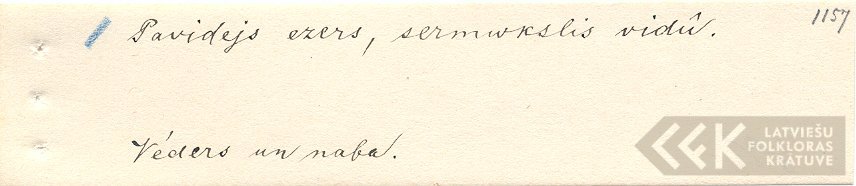 1157
Pavidejs ezers, sermukslis vidû.
Vēders un naba.
LATVIEŠU
FOLKLORAS
KRĀTUVE